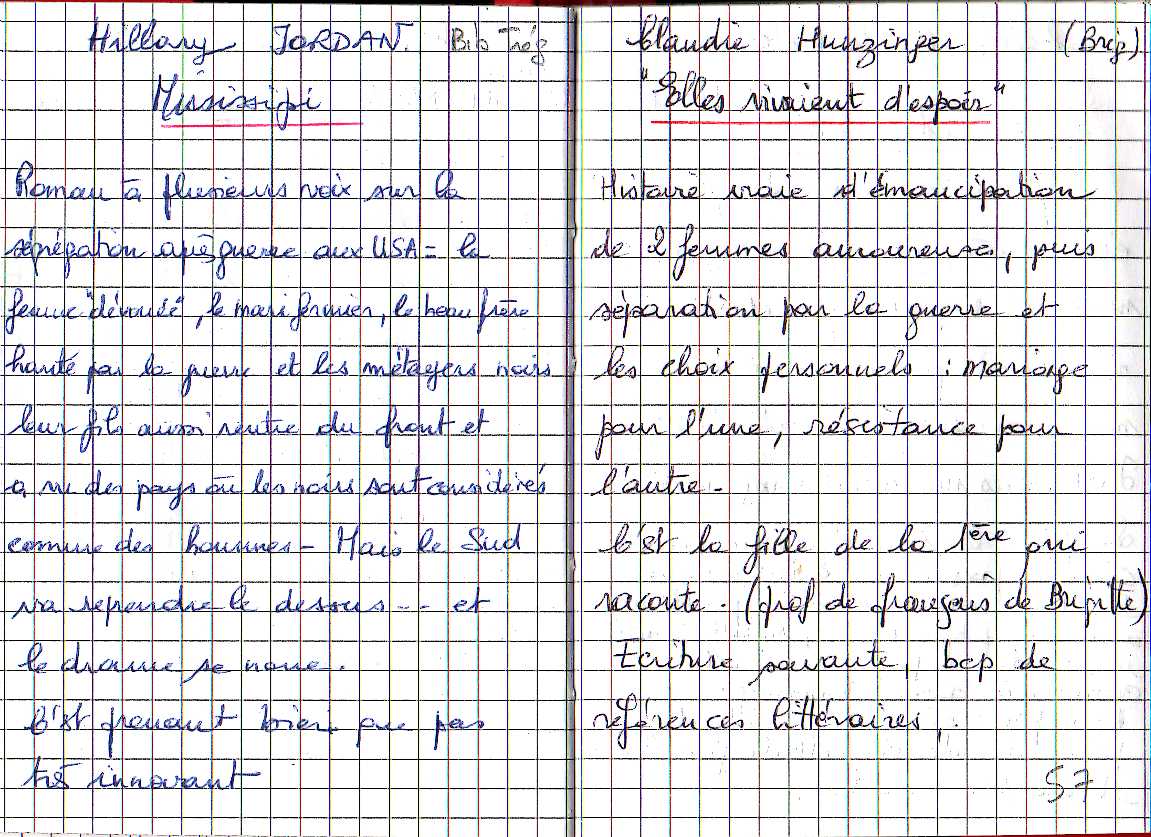 Hillary JORDAN. Bib Trég
Missisipi
Roman à plusieurs voix sur la
ségrégation après guerre aux USA = la
femme "dévouée", le mari fermier, le beau frère
hanté par la guerre et les métayers noirs
leur fils aussi rentre du front et
a vu des pays où les noirs sont considérés
comme des hommes - Mais le Sud
va reprendre le dessus -- et
le drame se noue.
C'est prenant bien que pas
très innovant
Claudie Hunzinger (Brig).
"Elles vivaient d'espoir"
Histoire vraie d'émancipation
de 2 femmes amoureuses, puis
séparation par la guerre et
les choix personnels : mariage
pour l'une, résistance pour
l'autre -
C'est la fille de la 1ère qui
raconte. (prof de français de Brigitte)
Ecriture savante, bcp de
références littéraires,.
57